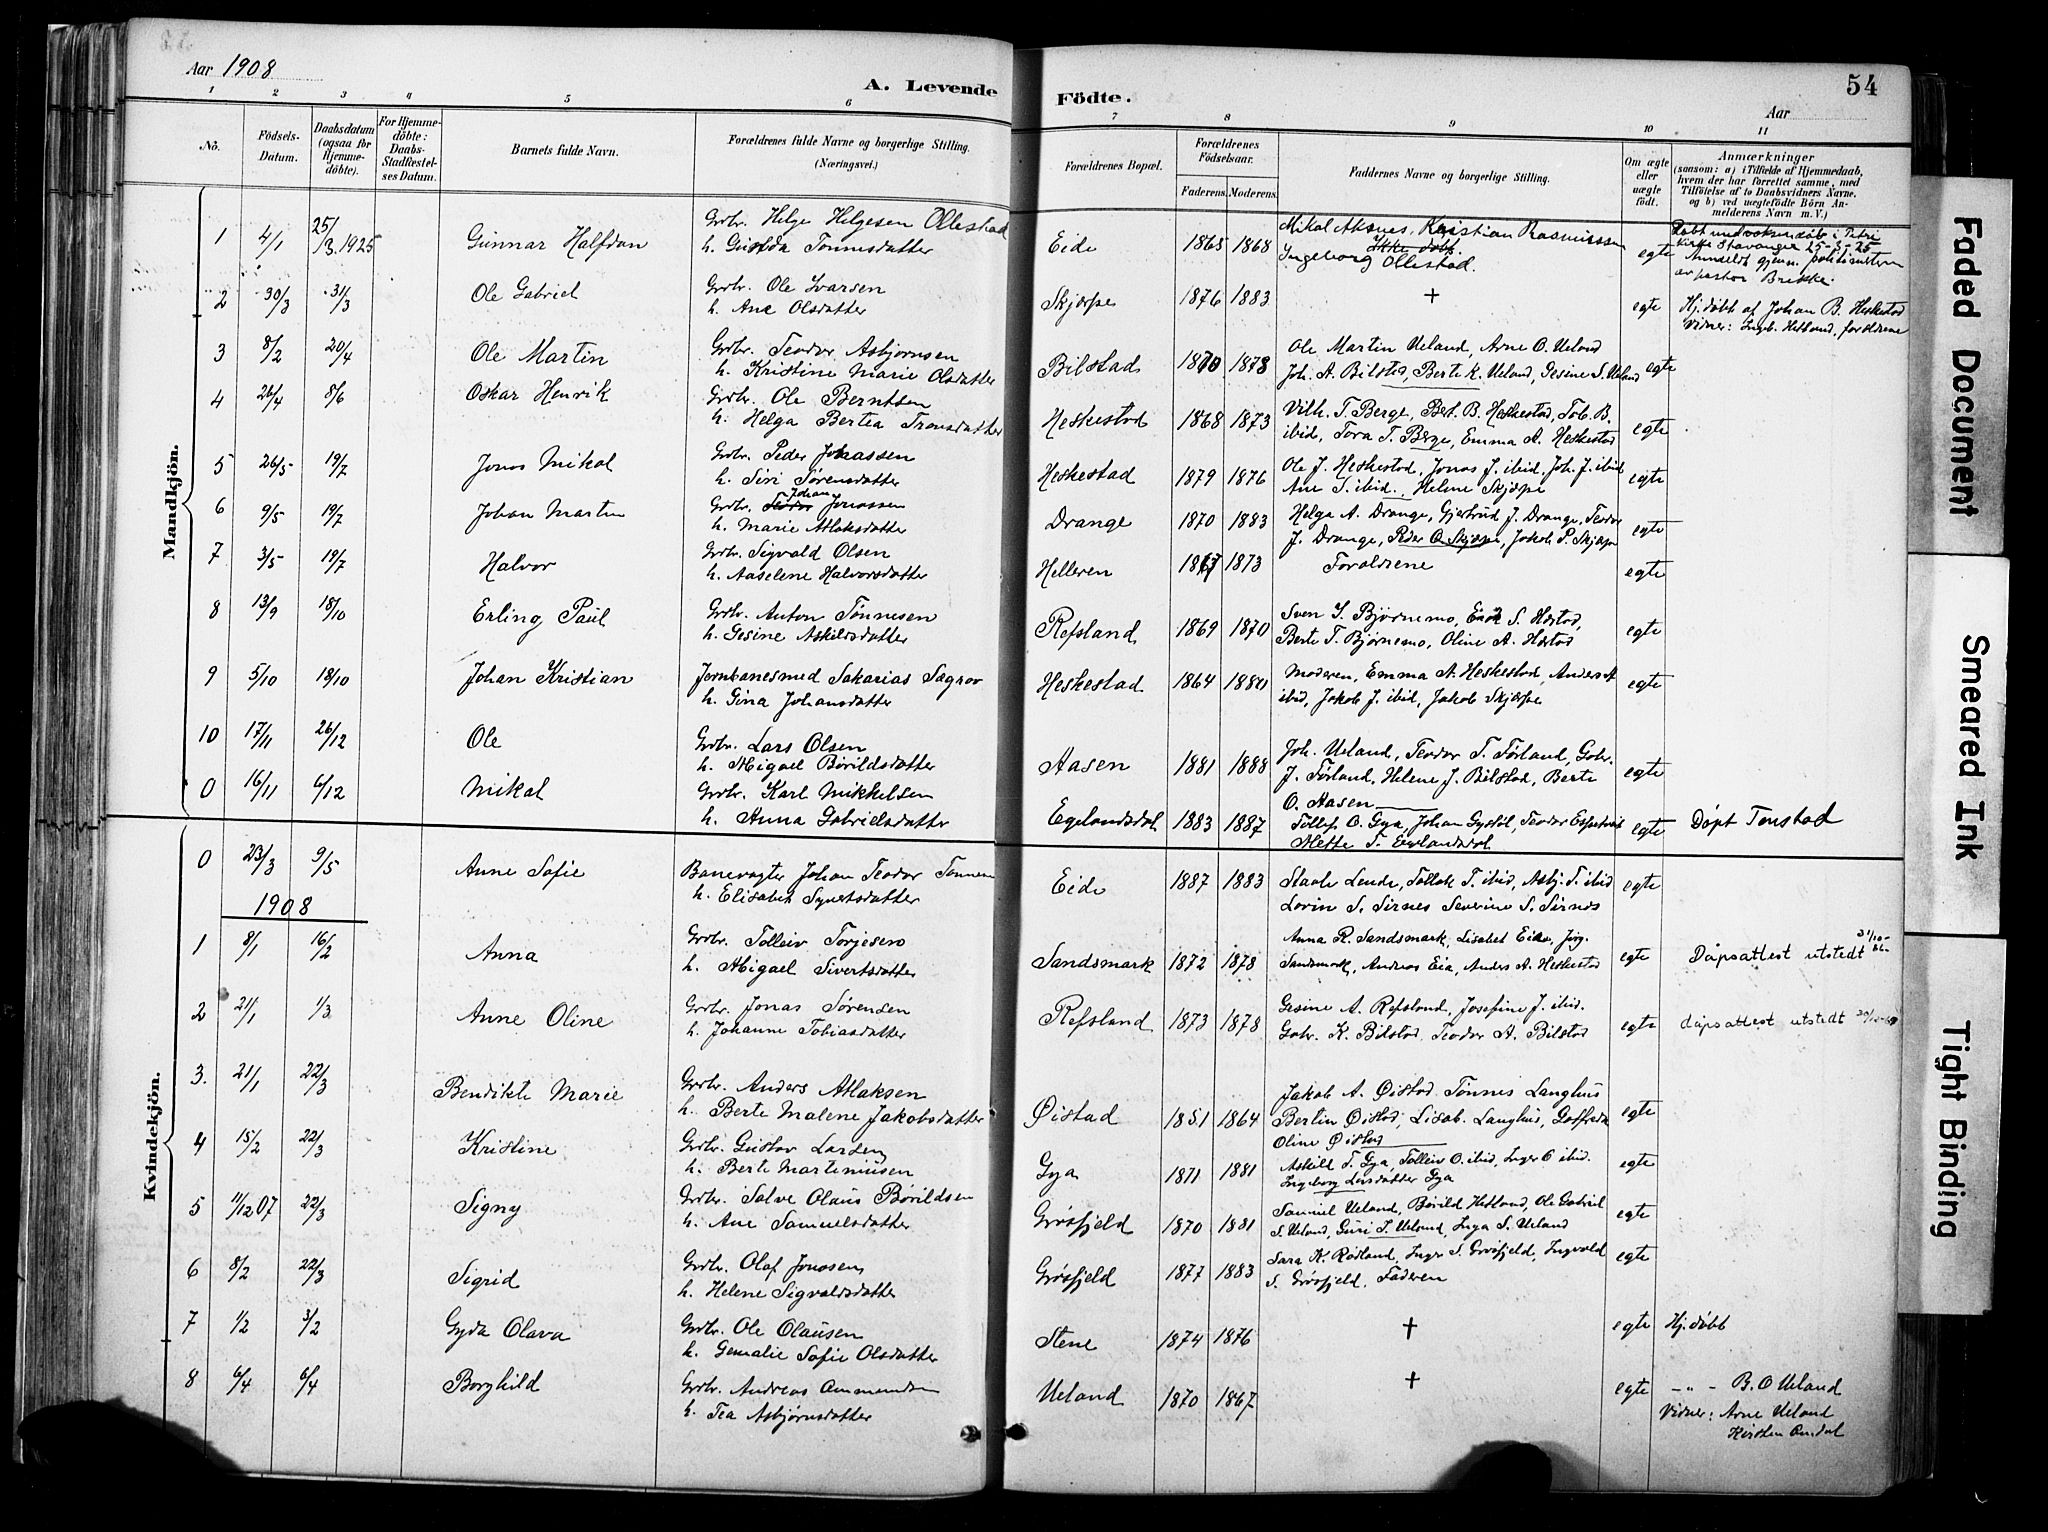 Aar 1908
A. Levende Födte.
Aar
54
1 2 3 4 5 6 7 8 9 10 11
No.
Födsels-Datum.
Daabsdatum (ogsaa for Hjemmedöbte).
For Hjemmedöbte: Daabs-Stadfæstelses Datum.
Barnets fulde Navn.
Forældrenes fulde Navne og borgerlige Stilling. (Næringsvei.)
Forældrenes Bopæl.
Forældrenes Födselsaar.
Faderens. Moderens.
Faddernes Navne og borgerlige Stilling.
Om ægte eller uægte födt.
Anmærkninger (saasom: a) i Tilfælde af Hjemmedaab, hvem der har forrettet samme, med Tilföielse af to Daabsvidners Navne. og b) ved uægtefödte Börn Anmelderens Navn m. V.)
Mandkjön.
1 4/1 25/3.1925 Gunnar Halfdan Grdbr. Helge Helgesen Ollestad
h. Gustda Tønnesdatter Eide 1865 1868 Mikal Aksnes, Kristian Rasmussen
Ikke døbt
Ingeborg Ollestad. egte Kirke Stavanger 25-3-25
av pastor Brekke.
2 30/3 31/3 Ole Gabriel Grdbr. Ole Ivarsen
h. Ane Olsdatter Skjæpe 1876 1883 + egte Hj.døbt af Johan B. Heskestad
Vidner: Ingeb. Hetland, forældrene
3 8/2 20/4 Ole Martin Grdbr. Teodor Asbjørnsen
h. Kristine Marie Olsdatter Bilstad 1870 1878 Ole Martin Ueland, Arne O. Ueland
Joh. A. Bilstad, Berte K. Ueland, Gesine S. Ueland egte
4 26/4 8/6 Oskar Henrik Grdbr. Ole Berntsen
h. Helga Bertea Tronsdatter Heskestad 1868 1873 Vilh. T. Berge, Bert. B. Heskestad, Tob. B.
ibid, Tora T. Berge, Emma A. Heskestad egte
5 26/5 19/7 Jonas Mikal Grdbr. Peder Johassen
h. Siri Sørensdatter Heskestad 1879 1876 Ole J. Heskestad, Jonas J. ibid, Joh. J. ibid
Ane S. ibid., Helene Skjæpe egte
6 9/5 19/7 Johan Martin Grdbr. Teodor Johan Jonassen
h. Marie Atlaksdatter Drange 1870 1883 Helga A. Drange, Gjertrud J. Drange, Teodor
J. Drange, Peder O. Skjæpe, Jakob P. Skjæpe egte
7 3/5 19/7 Halvor Grdbr. Sigvald Olsen
h. Aaselene Halvorsdatter Helleren 1867 1873 Forældrene egte
8 13/9 18/10 Erling Paul Grdbr. Anton Tønnesen
h. Gesine Askildsdatter Refsland 1869 1870 Sven I. Bjørnemo, Erik S. Hæstad,
Berte T. Bjørnemo, Oline A. Hæstad egte
9 5/10 18/10 Johan Kristian Jernbanesmed Sakarias Sægrov
h. Gina Johansdatter Heskestad 1864 1880 Moderen, Emma A. Heskestad, Anders A
ibid, Jakob J. ibid, Jakob Skjæpe egte
10 17/11 26/12 Ole Grdbr. Lars Olsen
h. Migael Børildsdatter Aasen 1881 1888 Joh. Ueland, Teodor T. Førland, Gabr.
J. Førland, Helene J. Bilstad, Berte
O. Aasen egte
0 16/11 6/12 Mikal Grdbr. Karl Mikkelsen
h. Anna Gabrielsdatter Egelandsdal 1883 1887 Tollef O. Gya, Johan Gystøl, Teodor
Mette T. Egelandsdal egte Døpt Tonstad
0 23/3 9/5 Anne Sofie Banevogter Johan Teodor Tønnesen
h. Elisabet Syvertsdatter Eide 1887 1883 Staale Lende, Tollak T. ibid, Asbj. T. ibid
Lovin S. Sirnes Severine S. Sirnes egte
1908
Kvindekjön.
1 8/1 16/2 Anna Grdbr. Tolleiv Torjesen
h. Migael Sivertsdatter Sandsmark 1872 1878 Anna R. Sandsmark, Lisabet Eide, Jørg.
Sandsmark, Andreas Eia, Anders A. Heskestad egte Dåpsattest utstedt 31/10-
2 21/1 1/3 Anne Oline Grdbr. Jonas Sørensen
h. Johanne Tobiasdatter Refsland 1873 1878 Gesine A. Refsland, Josefine J. ibid.
Gabr. K. Bilstad, Teodor A. Bilstad egte dåpsattest utstedt
3. 21/1 22/3 Bendikte Marie Grdbr. Anders Atlaksen
h. Berte Malene Jakobsdatter Øistad 1851 1864 Jakob A. Øistad, Tønnes Langhus
Bertin Øistad, Lisab. Langhus, Gotfreda
Oline Øistad egte
4 15/2 22/3 Kristine Grdbr. Gustav Larsen
h. Berte Martiniusen Gya 1871 1881 Askild T. Gya, Tolleiv O. ibid, Inger O ibid.
Ingeborg Larsdatter Gya egte
5 11/12 07 22/3 Signy Grdbr. Salve Olaus Børildsen
h. Ane Samuelsdatter Grøsfjeld 1870 1881 Samuel Ueland, Børild Hetland, Ole Gabriel
S. Ueland, Guri T. Ueland, Inga S. Ueland egte
6 8/2 22/3 Sigrid Grdbr. Olaf Jonasen
h. Helene Sigvaldsdatter Grøsfjeld 1877 1883 Sara K. Rødland, Inger S. Grøsfjeld, Ingvald
S. Grøsfjeld. Faderen egte
7 1/2 3/2 Gyda Olava Grdbr. Ole Olausen
h. Gemalie Sofie Olsdatter Stene 1874 1876 + egte Hj.døbt
8 6/4 6/4 Borghild Grdbr. Andreas Ommundsen
h. Tea Asbjørnsdatter Ueland 1870 1867 + egte -"- B.O Ueland
Vidner: Arne Ueland
Kirsten Omdal
Faded Document
Smeared Ink
Tight Binding